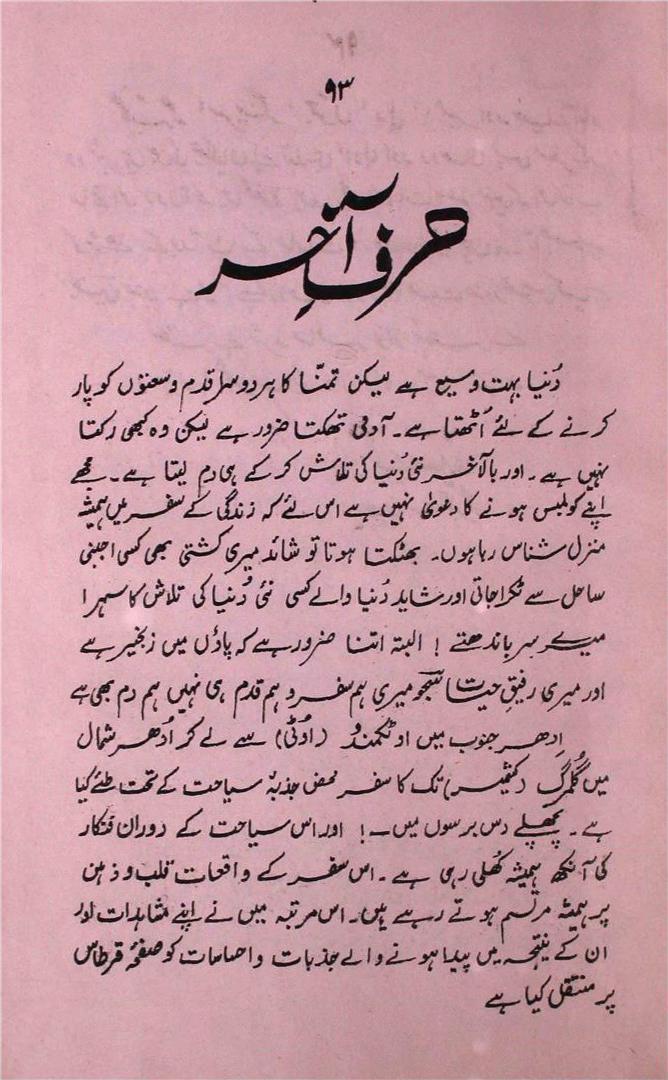 ۹۳
حرفِ آخر
دُنیا بہت وسیع ہے لیکن تمنّا کا ہر دوسرا قدم وسعتوں کو پار
کرنے کے لئے اُٹھتا ہے۔ آدمی تھکتا ضرور ہے لیکن وہ کبھی رکتا
نہیں ہے۔ اور بالآخر نئی دُنیا کی تلاش کر کے ہی دم لیتا ہے۔ مجھے
اپنے کولمبس ہونے کا دعویٰ نہیں ہے اس لئے کہ زندگی کے سفر میں ہمیشہ
منزل شناس رہا ہوں۔ بھٹکتا ہوتا تو شائد میری کشتی بھی کسی اجنبی
ساحل سے ٹکرا جاتی اور شاید دُنیا والے کسی نئی دُنیا کی تلاش کا سہرا
میرے سر باندھتے ! البتہ اتنا ضرور ہے کہ پاؤں میں زنجیر ہے
اور میری رفیقِ حیات جو میری ہم سفر و ہم قدم ہی نہیں ہم دم بھی ہے
اِدھر جنوب میں اوٹکمنڈ (اوُٹی) سے لے کر اُدھر شمال
میں گلُمرگ (کشمیر) تک کا سفر محض جذبۂ سیاحت کے تحت طئے کیا
ہے۔ پچھلے دس برسوں میں ۔! اور اس سیاحت کے دوران فنکار
کی آنکھ ہمیشہ کھُلی رہی ہے۔ اس سفر کے واقعات قلب و ذہن
پر ہمیشہ مرتسم ہوتے رہے ہیں۔ اس مرتبہ میں نے اپنے مشاہدات اور
ان کے نتیجہ میں پیدا ہونے والے جذبات و احساسات کو صفحۂ قرطاس
پر منتقل کیا ہے